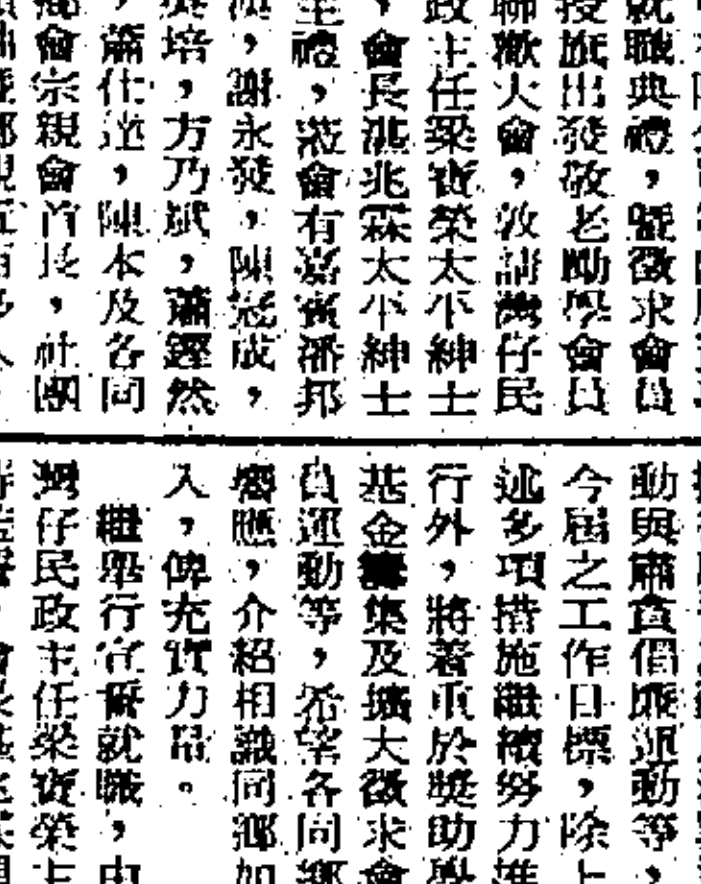 就職典禮，暨徵求會員
授旗出發敬老勵學會員
聯歡大會，敦請灣仔民
政主任梁寶榮太平紳士
，會長洪兆霖太平紳士
主禮，蒞會有嘉賓潘邦
，謝永發，陳冠成，
培，方乃斌，蕭鏗然
，蕭仕逆，陳本及各同
鄉會宗親會首長，社團
動與肅貪倡廉運動等，
今屆之工作目標，除上
述多項措施繼續努力推
行外，將着重於獎助學
基金籌集及擴大徵求會
員運動等，希望各同鄉
響應，介紹相識同鄉加
入，俾充實力量。
繼舉行宣誓就職，由
灣仔民政主任梁寶榮主